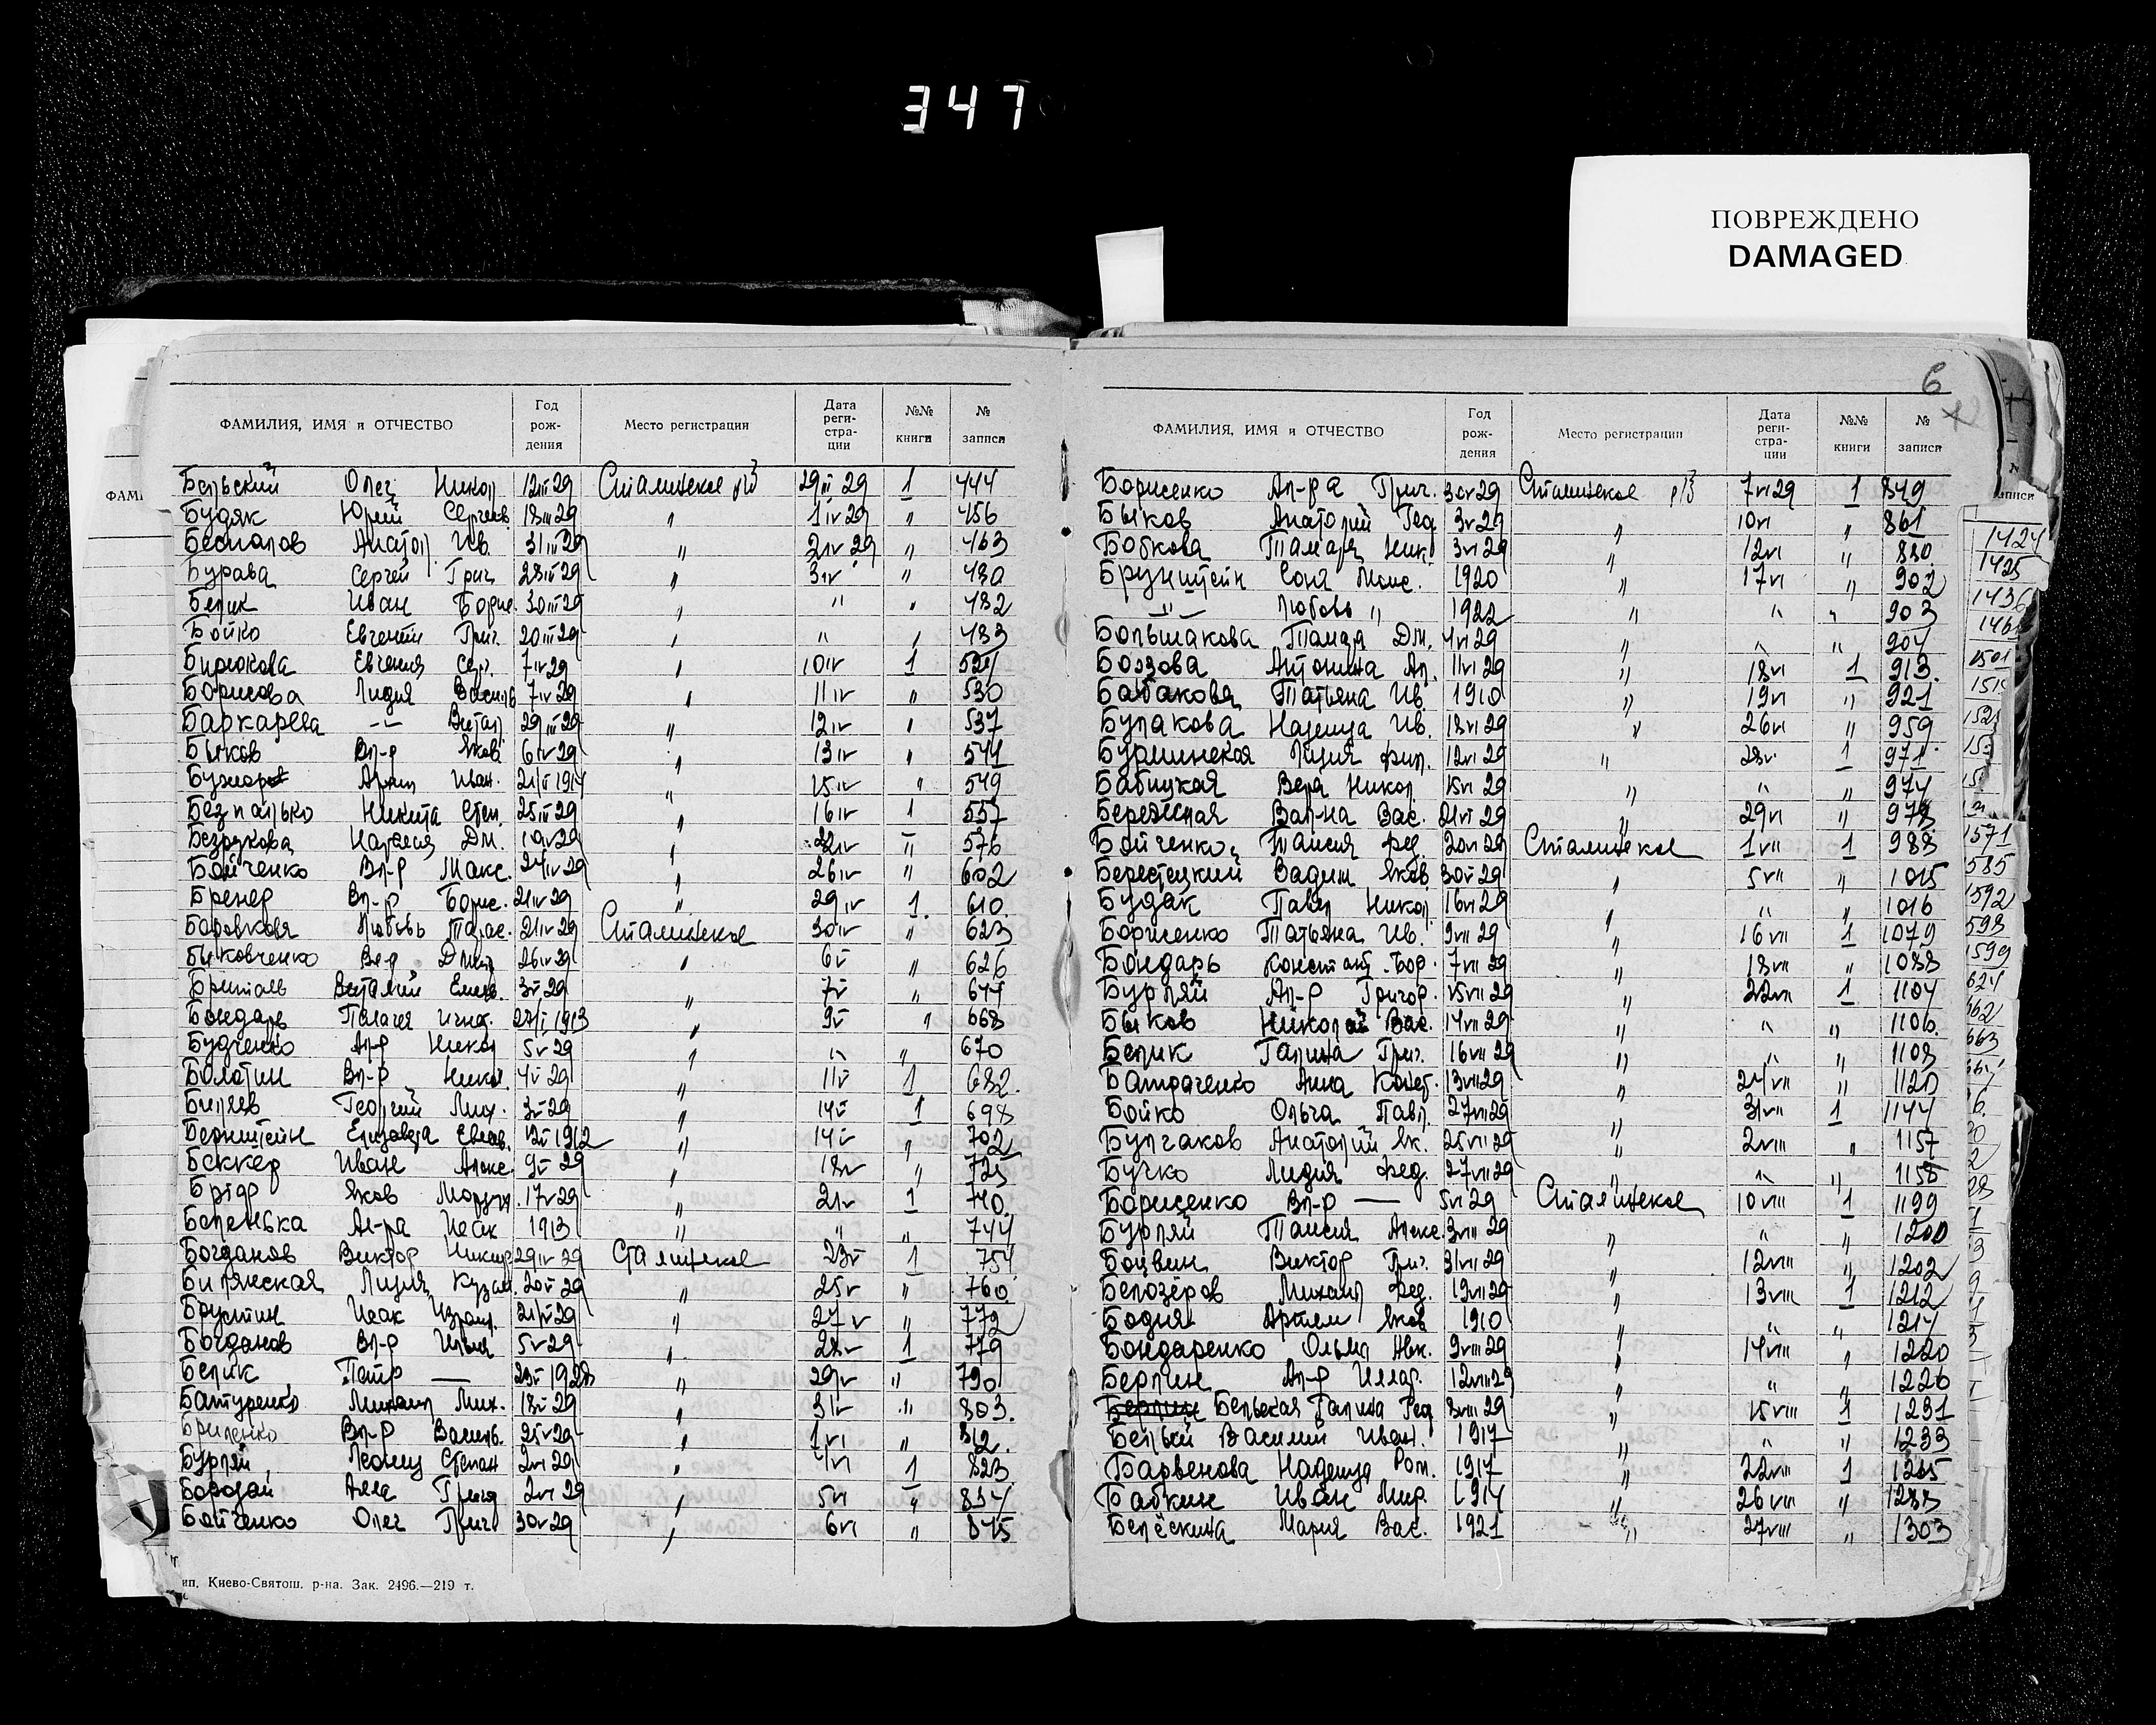 347
ПОВРЕЖДЕНО
DAMAGED
6
ФАМИЛИЯ, ИМЯ и ОТЧЕСТВО Год рож- дения Место регистрации Дата реги- стра- ции №№ книги № записи
Бельский Олег Никол 12III29 Сталинское 29III29 1 444
Будяк Юрий Сергеев. 18III29 " 1IV29 " 456
Беспалов Анатол Ив. 31III29 " 2IV29 " 463
Бурава Сергей Григ. 28III29 " 3IV " 480
Белик Иван Борис. 30III29 " " " 482
Бойко Евгений Григ. 20III29 " " " 483
Бирюкова Евгения Сер. 7IV29 " 10IV 1 524
Борисова Лидия Василь 7IV29 " 11IV " 530
Баркарева Витал 29III29 " 12IV " 537
Быков Вл-р Яков 6IV29 " 13IV " 541
Иван. " 15IV " 549
Никита Степ. 25III29 " 16IV 1 557
Безрукова Дм. " " 576
Бойченко Вл-р Макс. 24IV29 " 26IV " 602
Бренер Вл-р Борис. 21IV29 " 29IV 1 610
Боровкова Любовь Тарас. 21IV29 Сталинское 30IV " 623
Быковченко 26IV29 " 6V " 626
Виталий 3V29 " 7V " 644
Бондарь Палагея Игнат. " 9V " 668
Будченко Ал-р Никол 5V29 " " " 670
Болотин Вл-р Никол. 4V29 " 11V 1 682.
Биляев Георгий Мих. 3V29 " 14V 1 698
Бернштейн Елизавета 1912 " 14V " 702
Беккер Иван Алекс. 9V29 " 18V " 725
Яков 17V29 " 21V 1 740.
Беленька Ал-ра Исак 1913 " " " 744
Богданов Виктор 29IV29 Сталинское 23V 1 754
Билянская Лидия Кузьм. 20V29 " 25V " 760
Исак Израил. 21V29 " 27V " 772
Богданов Вл-р Илья 5V29 " 28V 1 779
Белик Петр — 1928 " 29V " 790
Батуренко Михаил Мих. 18V29 " 31V " 803.
Бриленко Вл-р Василь. 25V29 " 1VI " 812.
Бурляй Леонид Степан 2VI29 " 4VI 1 823
Бородай Алла 2VI29 " 5VI " 834
Бойченко Олег Григ 30V29 " 6VI " 845
ип. Киево-Святош. р-на. Зак. 2496.—219 т.
ФАМИЛИЯ, ИМЯ и ОТЧЕСТВО Год рож- дения Место регистрации Дата реги- стра- ции №№ книги № записи
Борисенко Ал-ра Григ. 30V29 Сталинское 7VI29 1 849
Быков Анатолий Гео 3V29 " 10VI " 861
Бобкова Тамара Ник. 3VI29 " 12VI " 880
Брунштейн Соня Моис. 1920 " 17VI " 902
—"— Любовь " 1922 " " " 903
Большакова Тамара Дм. 4VI29 " " " 904
Антонина Ал. 11VI29 " 18VI 1 913.
Бабакова Татьяна Ив. 1910 " 19VI " 921
Булакова Надежда Ив. 18VI29 " 26VI " 959
Лидия Фил. 12VI29 " 28VI 1 971
Бабицкая Вера Никол. 15VI29 " " " 974
Бережная Вал-на Вас. 21VI29 " 29VI " 978
Бойченко Таисия Фед. 20VI29 Сталинское 1VII 1 988
Берестецкий Вадим Яков 30V29 " 5VII " 1015
Будак Павел Никол. 16VI29 " " " 1016
Борисенко Татьяна Ив. 9VII29 " 16VII 1 1079
Бондарь Констант. Бор. 7VII29 " 18VII " 1088
Бурляй Ал-р Григор. 15VII29 " 22VII 1 1104
Быков Николай Вас. 14VII29 " " " 1106.
Белик Галина Григ. 16VII29 " " " 1108
Батраченко Анна Конст. 13VII29 " 24VII " 1120
Бойко Ольга Павл. 27VII29 " 31VII 1 1144
Булгаков Анатолий Як. 25VII29 " 2VIII " 1157
Бучко Лидия Фед. 27VII29 " " " 1158
Борищенко Вл-р — 5VI29 Сталинское 10VIII 1 1199
Бурляй Таисия Алекс. 3VIII29 " " " 1200
Боцвин Виктор Григ. 31VII29 " 12VIII " 1202
Белозёров Михаил Фед. 19VII29 " 13VIII 1 1212
Бодня Артем Яков 1910 " " " 1214
Бондаренко Ольга Ивк. 9VIII29 " 14VIII " 1220
Берлин Ал-р Иллар. 12VIII29 " " " 1226
Берлин Бельская Галина Гео 8VIII29 " 15VIII 1 1231
Белый Василий Иван. 1917 " " " 1233
Барвенова Надежда Ром. 1917 " 22VIII 1 1265
Бабкин Иван Мир. 1914 " 26VIII " 1288
Белёскина Мария Вас. 1921 " 27VIII " 1303
ФАМ
записи
1424
1425
1436
1501
1571
585
1592
598
1599
624
662
663